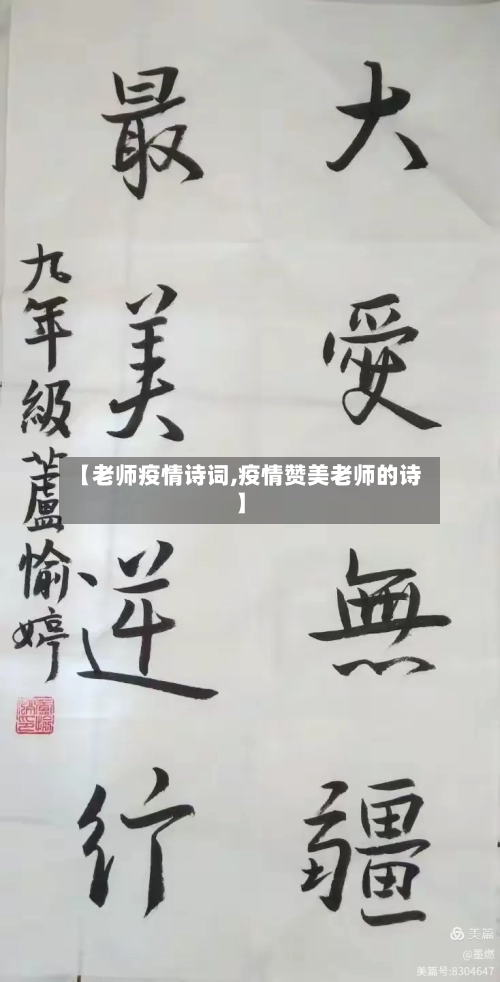 大愛無疆
最美逆行
九年級蘆愉婷
【老师疫情诗词,疫情赞美老师的诗
】
美篇
@墨燃
美篇号:8304647